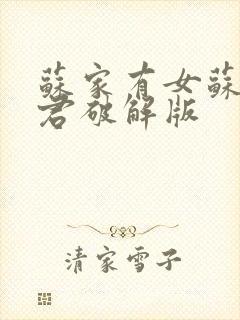 蘇家有女蘇
君破解版
清家雪子